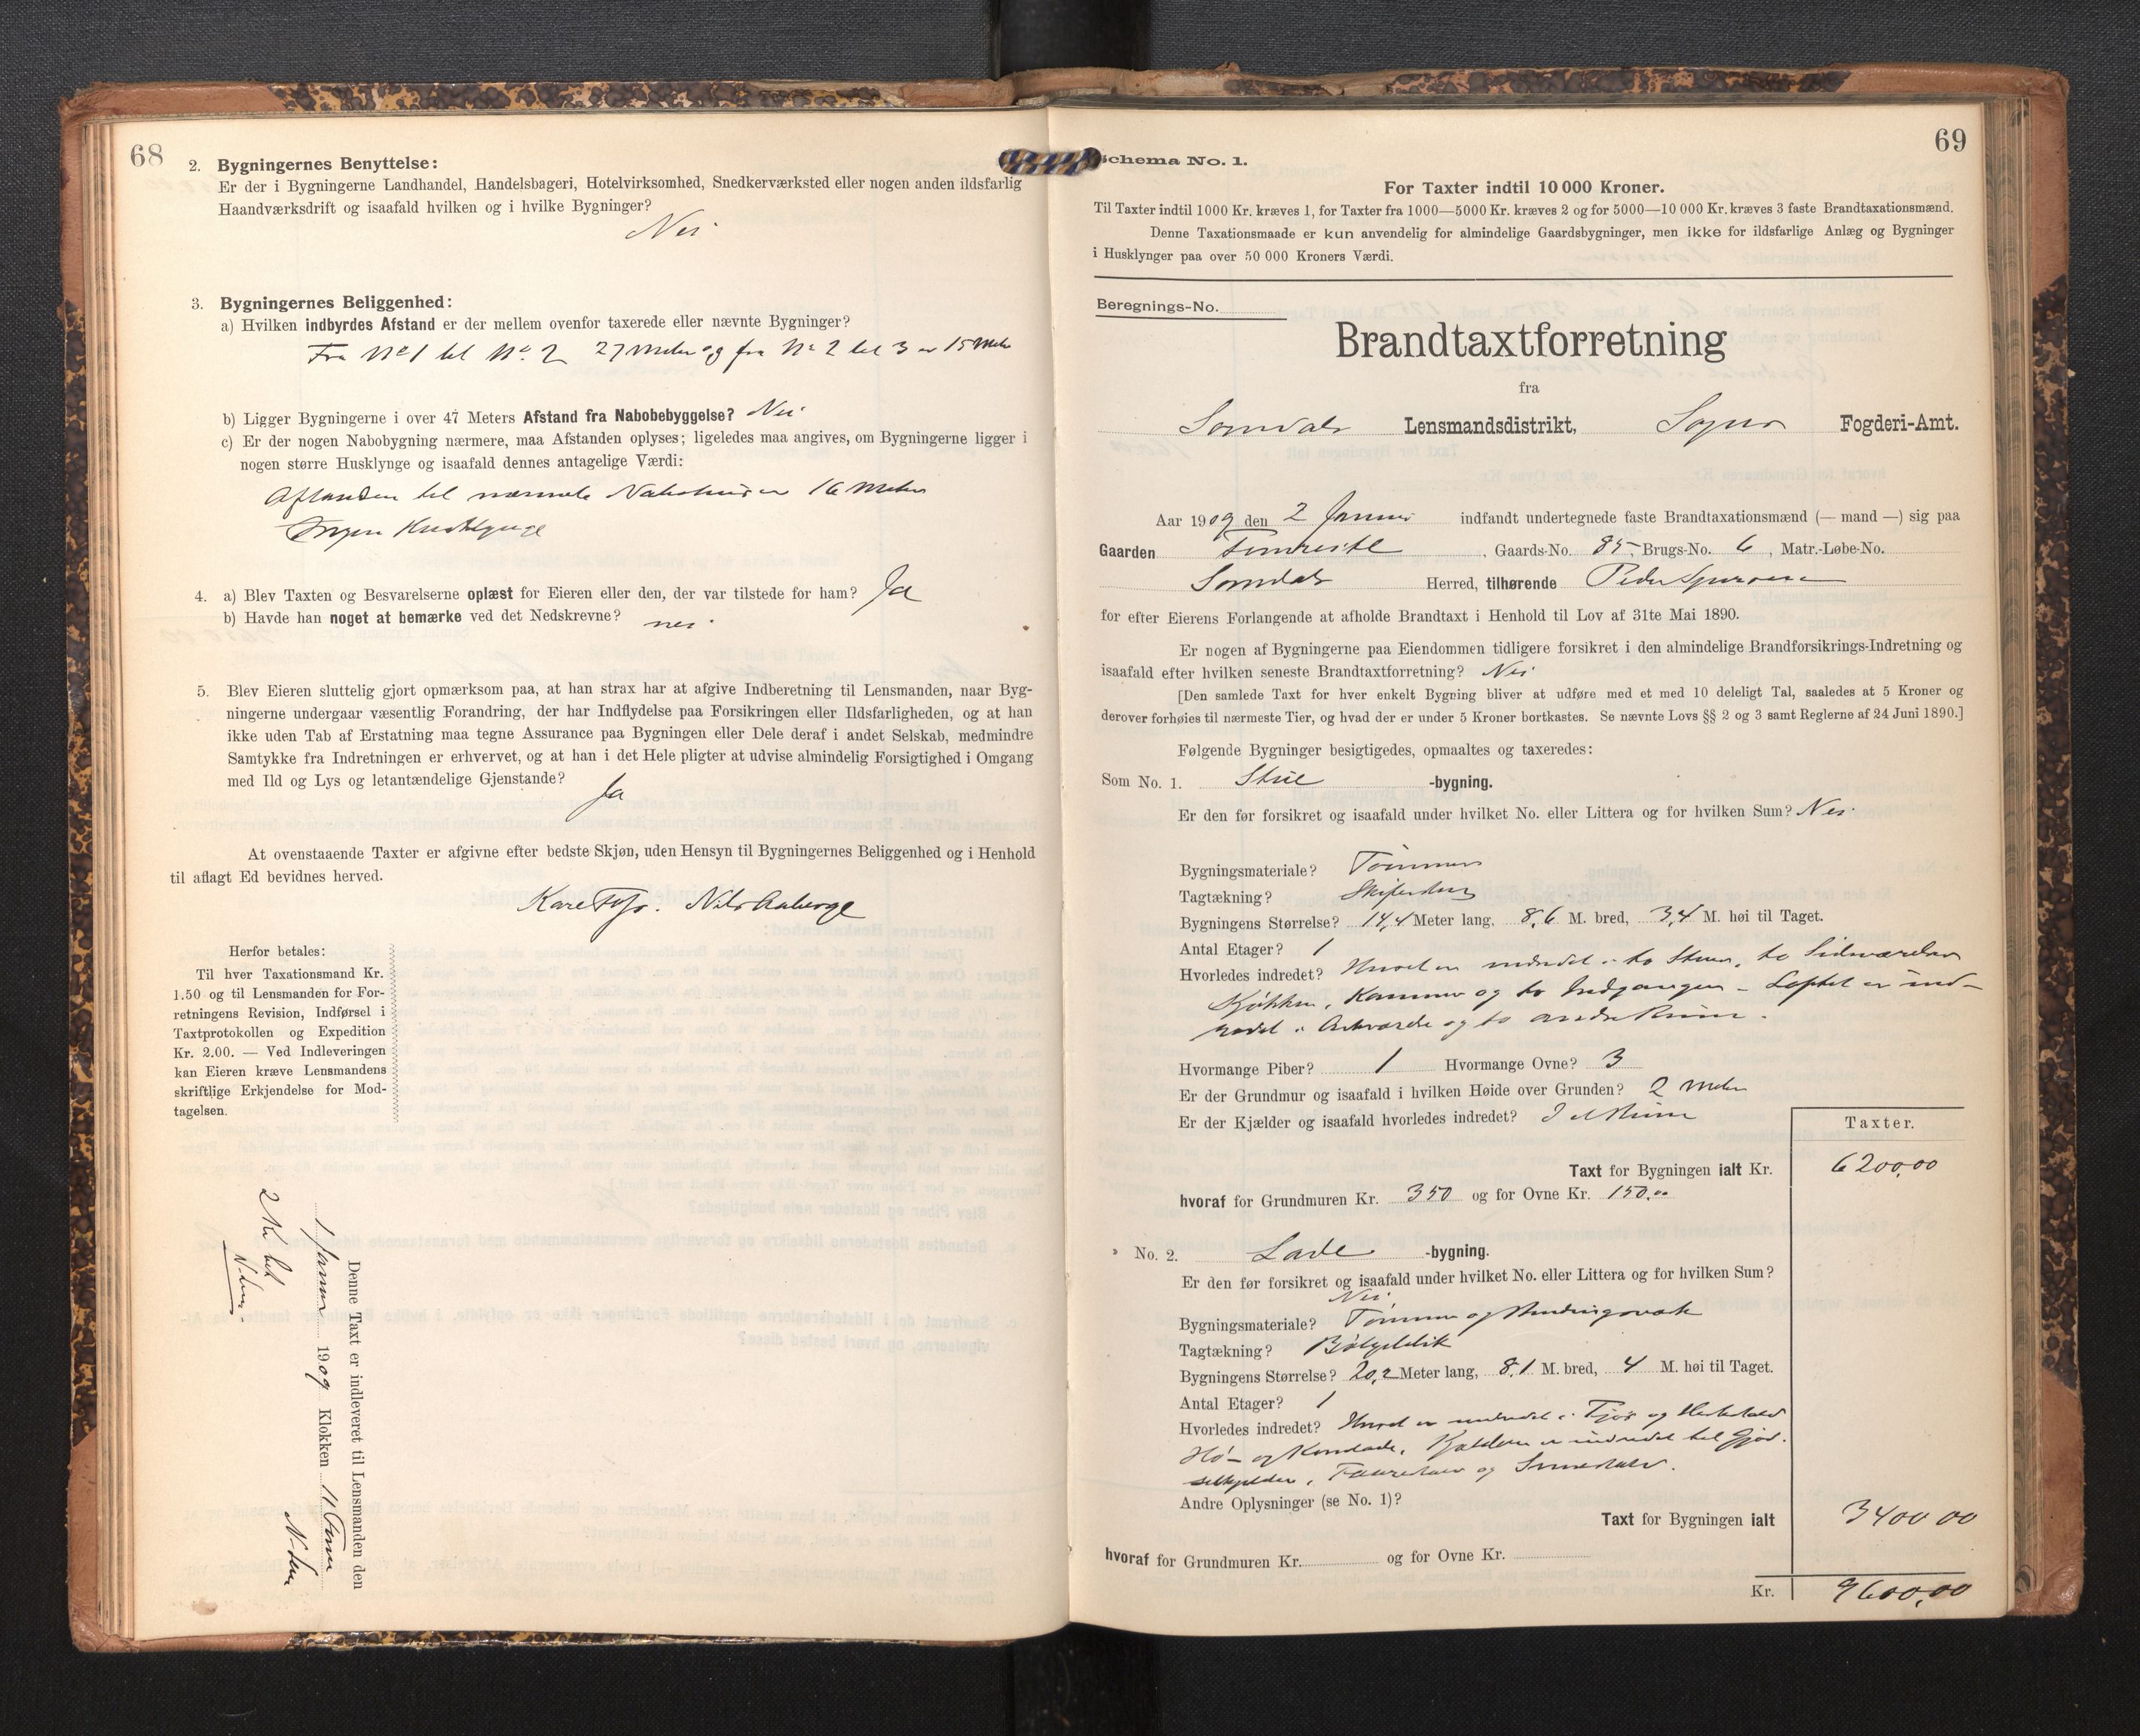 68
2. Bygningernes Benyttelse:
Er der i Bygningerne Landhandel, Handelsbageri, Hotelvirksomhed, Snedkerværksted eller nogen anden ildsfarlig
Haandværksdrift og isaafald hvilken og i hvilke Bygninger?
Nei
3. Bygningernes Beliggenhed:
a) Hvilken indbyrdes Afstand er der mellem ovenfor taxerede eller nævnte Bygninger?
Fra No 1 til No 2 27 Meter og fra No 2 til 3 er 15 Meter
b) Ligger Bygningerne i over 47 Meters Afstand fra Nabobebyggelse? Nei
c) Er der nogen Nabobygning nærmere, maa Afstanden oplyses; ligeledes maa angives, om Bygningerne ligger i
nogen større Husklynge og isaafald dennes antagelige Værdi:
Afstanden til nærmeste Nabohus er 16 Meter
Ingen Husklynge
4. a) Blev Taxten og Besvarelserne oplæst for Eieren eller den, der var tilstede for ham? Ja
b) Havde han noget at bemærke ved det Nedskrevne? nei.
5. Blev Eieren sluttelig gjort opmærksom paa, at han strax har at afgive Indberetning til Lensmanden, naar Byg-
ningerne undergaar væsentlig Forandring, der har Indflydelse paa Forsikringen eller Ildsfarligheden, og at han
ikke uden Tab af Erstatning maa tegne Assurance paa Bygningen eller Dele deraf i andet Selskab, medmindre
Samtykke fra Indretningen er erhvervet, og at han i det Hele pligter at udvise almindelig Forsigtighed i Omgang
med Ild og Lys og letantændelige Gjenstande?
Ja
At ovenstaaende Taxter er afgivne efter bedste Skjøn, uden Hensyn til Bygningernes Beliggenhed og i Henhold
til aflagt Ed bevidnes herved.
Nils Aaberge
Herfor betales:
Til hver Taxationsmand Kr.
1.50 og til Lensmanden for For-
retningens Revision, Indførsel i
Taxtprotokollen og Expedition
Kr. 2.00. — Ved Indleveringen
kan Eieren kræve Lensmandens
skriftlige Erkjendelse for Mod-
tagelsen.
Denne Taxt er indleveret til Lensmanden den
1909 Klokken
69
Schema No. 1.
For Taxter indtil 10 000 Kroner.
Til Taxter indtil 1000 Kr. kræves 1, for Taxter fra 1000—5000 Kr. kræves 2 og for 5000—10 000 Kr. kræves 3 faste Brandtaxationsmænd.
Denne Taxationsmaade er kun anvendelig for almindelige Gaardsbygninger, men ikke for ildsfarlige Anlæg og Bygninger
i Husklynger paa over 50 000 Kroners Værdi.
Beregnings-No.
Brandtaxtforretning
fra
Lensmandsdistrikt, Fogderi-Amt.
Aar 1909 den 2 Januar indfandt undertegnede faste Brandtaxationsmænd (— mand —) sig paa
Gaarden , Gaards-No. 85, Brugs-No. 6, Matr.-Løbe-No.
Herred, tilhørende Peder
for efter Eierens Forlangende at afholde Brandtaxt i Henhold til Lov af 31te Mai 1890.
Er nogen af Bygningerne paa Eiendommen tidligere forsikret i den almindelige Brandforsikrings-Indretning og
isaafald efter hvilken seneste Brandtaxtforretning? Nei
[Den samlede Taxt for hver enkelt Bygning bliver at udføre med et med 10 deleligt Tal, saaledes at 5 Kroner og
derover forhøies til nærmeste Tier, og hvad der er under 5 Kroner bortkastes. Se nævnte Lovs §§ 2 og 3 samt Reglerne af 24 Juni 1890.]
Følgende Bygninger besigtigedes, opmaaltes og taxeredes:
Som No. 1. Stue -bygning.
Er den før forsikret og isaafald under hvilket No. eller Littera og for hvilken Sum? Nei
Bygningsmateriale? Tømmer
Tagtækning?
Bygningens Størrelse? 14,4 Meter lang, 8,6 M. bred, 3,4 M. høi til Taget.
Antal Etager? 1
Hvorledes indredet? Huset er indredet i to Stuer, to Sideværelser
Kjøkken, Kammer og to Indgange – Loftet er ind-
redet i Arkværelse og to andre Rum.
Hvormange Piber? 1 Hvormange Ovne? 3
Er der Grundmur og isaafald i hvilken Høide over Grunden? 2 Meter
Er der Kjælder og isaafald hvorledes indredet? I et Rum
Taxter.
Taxt for Bygningen ialt Kr. 6200,00
hvoraf for Grundmuren Kr. 350 og for Ovne Kr. 150.00
No. 2. Lade -bygning.
Er den før forsikret og isaafald under hvilket No. eller Littera og for hvilken Sum?
Nei
Bygningsmateriale? Tømmer og Bindingsværk
Tagtækning? Bølgeblik
Bygningens Størrelse? 20,2 Meter lang, 8,1 M. bred, 4 M. høi til Taget.
Antal Etager? 1
Hvorledes indredet? Huset er indredet i Fjøs og Hestestald
Hø- og Kornlade. Kjelderen er indredet til Gjød-
selkjelder, Faurestald og
Andre Oplysninger (se No. 1)?
Taxt for Bygningen ialt 3400 00
hvoraf for Grundmuren Kr. og for Ovne Kr.
Kr. 9600,00